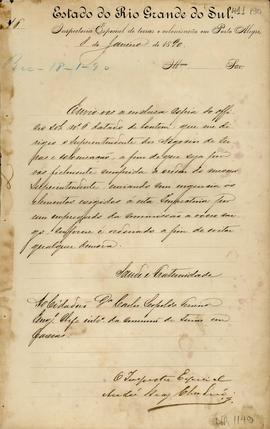 Estado do Rio Grande do Sul.
Inspectoria Especial de terras e colonisação em Porto Alegre
8 de Janeiro de 1890
Rec-18-1-90
Illmo Snr
Envio-vos a inclusa copia do offi-
cio sob Nº 6 datado de hontem, que me di-
rigio o Superintendente dos Negocios de ter-
ras e colonisação, a fim de que seja por
vos fielmente cumprida a ordem do mesmo
Superintendente enviando com urgencia os
elementos exigidos a esta Inspectoria por
um empregado da commissão a vosso car-
go conforme é ordenado a fim de evitar
qualquer demora.
Saude e Fraternidade
Ao Cidadão Dr Carlos Leopoldo
Engº Chefe da commissão de terras em
Caxias
O Inspector Especial